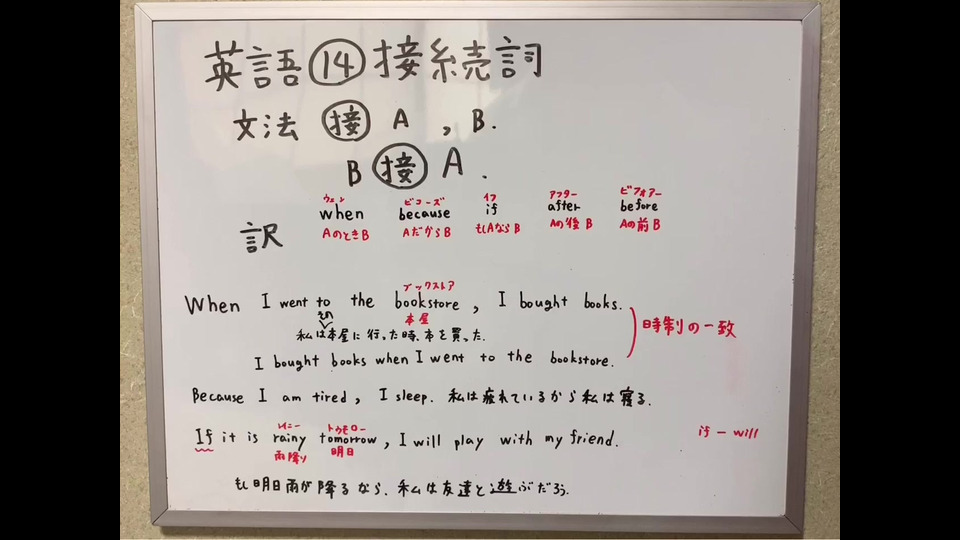 英語⑭接続詞
文法 接 A , B.
B 接 A .
ウェン ビコーズ イフ アフター ビフォアー
when because if after before
訳 AのときB AだからB もしAならB Aの後B Aの前B
ブックストア
When I went to the bookstore , I bought books.
その 本屋
私は本屋に行った時、本を買った.
時制の一致
I bought books when I went to the bookstore.
Because I am tired , I sleep. 私は疲れているから私は寝る.
レイニー トゥモロー
If it is rainy tomorrow , I will play with my friend. if - will
雨降り 明日
もし明日雨が降るなら、私は友達と遊ぶだろう.